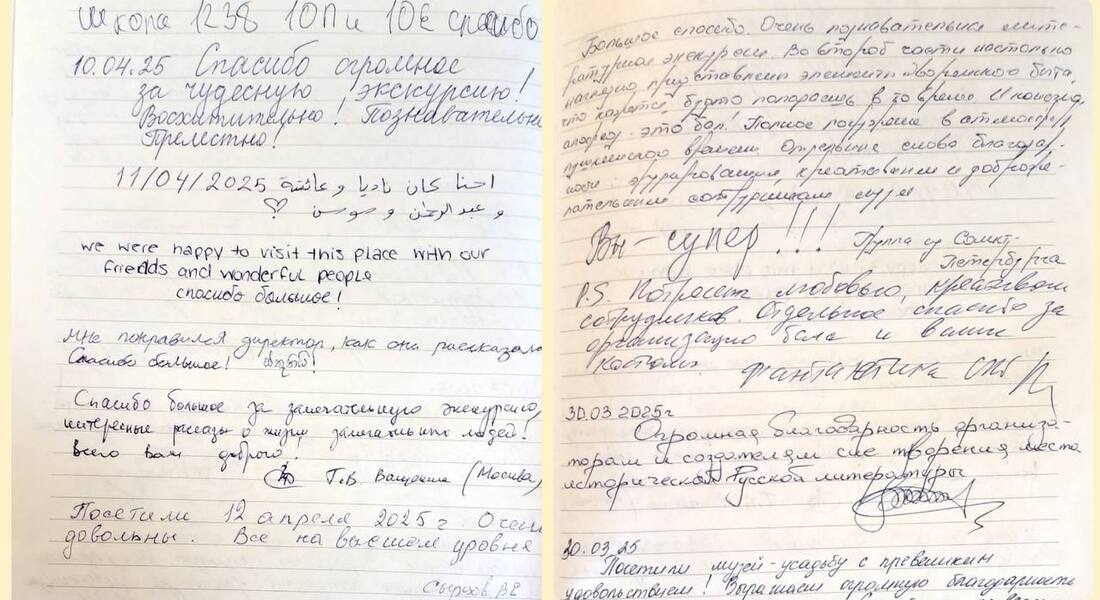 школа 1238 10П и 10Е спасибо
10.04.25 Спасибо огромное
за чудесную экскурсию!
Восхитительно! Познавательно
Прелестно!
11/04/2025 احنا كان ناديا و عائشة
و عبدالرحمن و سوسن ♡
we were happy to visit this place with our
friends and wonderful people
спасибо большое!
Мне понравился директор, как она рассказала
Спасибо большое!
Спасибо большое за замечательную экскурсию,
интересные рассказы о жизни замечательных людей!
Всего вам доброго.
Т.В. (Москва)
Посетили 12 апреля 2025 г Очень
довольны. Все на высшем уровне
Большое спасибо. Очень познавательная лите-
ратурная экскурсия. Во второй части настолько
наглядно представлены элементы дворянского быта,
что кажется, будто попадаешь в то время. И конечно,
это бал! Полное погружение в атмосферу
пушкинского времени. Отдельные слова благодар-
ности эрудированным, креативным и доброже-
лательным сотрудникам музея
Вы - супер!!! Группа из Санкт-
Петербурга
P.S. Потрясает любовью, креативом
сотрудников. Отдельное спасибо за
организацию бала и ваши
костюмы.
Фантастика СПб
30.03 2025г
Огромная благодарность организа-
торам и создателям сие творения места
исторической Русской литературы
30.03.25
Посетили музей-усадьбу с превеликим
удовольствием! Выражаем огромную благодарность